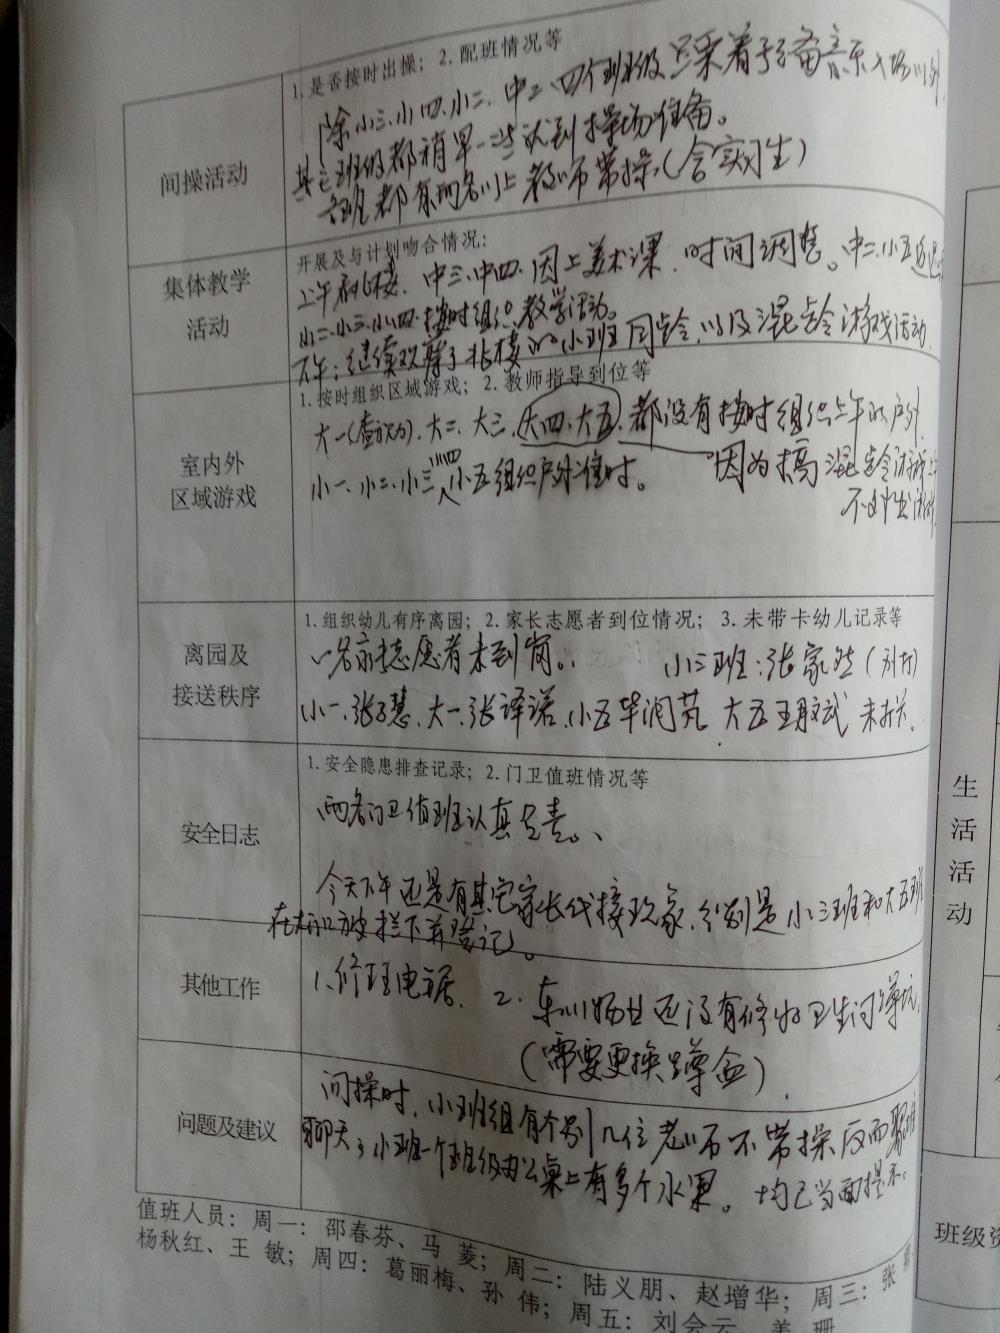 间操活动
1. 是否按时出操；2. 配班情况等
除小三、小四、小二、中二四个班级只采着于预备音乐入场以外，
其它班级都稍早一些达到操场准备。
各班都有两名以上教师带操（含实习生）
集体教学
活动
开展及与计划吻合情况：
上午 北楼、中三、中四、因上美术课，时间调整。中二、小五
小二、小三、小四、按时组织教学活动。
下午：继续观摩了北楼的小班同龄，以及混龄游戏活动
室内外
区域游戏
1. 按时组织区域游戏；2. 教师指导到位等
大一（ ）、大二、大三、大四、大五，都没有按时组织上午的户外，
小一、小二、小三、小四、小五组织户外准时。 因为搞混龄游戏
离园及
接送秩序
1. 组织幼儿有序离园；2. 家长志愿者到位情况；3. 未带卡幼儿记录等
一名家长志愿者未到岗。 小三班：张家
小一、张子慧、大一、张译诺、小五毕润 大五王 武 未
安全日志
1. 安全隐患排查记录；2. 门卫值班情况等
两名门卫值班认真负责。
今天下午还是有其它家长代接现象，分别是小三班和大五班
在大门口被拦下并登记。
其他工作
1. 修理电 2. 还没有修好卫生间蹲坑，
（需要更换蹲盆）
问题及建议
间操时，小班组有个别几位老师不带操反而聚堆
聊天；小班一个班级办公桌上有多个水果。均已当面提示。
值班人员：周一：邵春芬、马 菱；周二：陆义朋、赵增华；周三：张
杨秋红、王 敏；周四：葛丽梅、孙 伟；周五：刘会云、姜 珊
生活活动
班级资